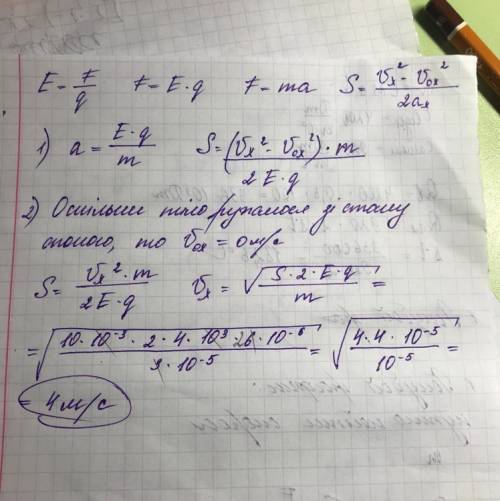 E = F/q   F = E·q   F = ma   S = (Vx² - Vox²)/2ax
1) a = E·q/m   S = (Vx² - Vox²)·m/2E·q
2) Оскільки тіло рухалося зі стану
спокою, то Vox = 0 м/с
S = Vx²·m/2E·q   Vx = √(S·2·E·q/m) =
= √(10·10⁻³·2·4·10³ ·10⁻⁶/10⁻⁵) = √(4·4·10⁻⁵/10⁻⁵) =
= 4 м/с